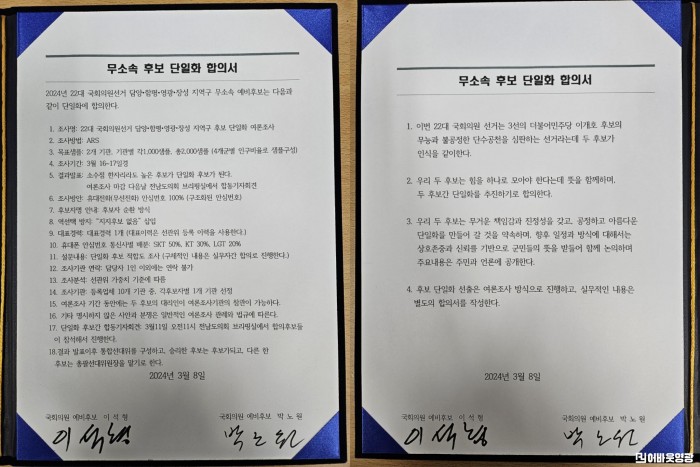 무소속 후보 단일화 합의서
2024년 22대 국회의원선거 담양•함평•영광•장성 지역구 무소속 예비후보는 다음과
같이 단일화에 합의한다.
1. 조사명: 22대 국회의원선거 담양•함평•영광•장성 지역구 후보 단일화 여론조사
2. 조사방법: ARS
3. 목표샘플: 2개 기관, 기관별 각1,000샘플, 총2,000샘플 (4개군별 인구비율로 샘플구성)
4. 조사기간: 3월 16~17일경
5. 결과발표: 소수점 한자리라도 높은 후보가 단일화 후보가 된다.
여론조사 마감 다음날 전남도의회 브리핑실에서 합동기자회견
6. 조사방안: 휴대전화(무선전화) 안심번호 100% (구조화된 안심번호)
7. 후보자명 안내: 후보자 순환 방식
8. 역선택 방지: "지지후보 없음" 삽입
9. 대표경력: 대표경력 1개 (대표이력은 선관위 등록 이력을 사용한다.)
10. 휴대폰 안심번호 통신사별 배분: SKT 50%, KT 30%, LGT 20%
11. 설문내용: 단일화 후보 적합도 조사 (구체적인 내용은 실무자간 합의로 진행한다.)
12. 조사기관 연락: 담당자 1인 이외에는 연락 불가
13. 조사분석: 선관위 가중치 기준에 따름
14. 조사기관: 등록업체 10개 기관 중, 각후보자별 1개 기관 선정
15. 여론조사 기간 동안에는 두 후보의 대리인이 여론조사기관의 참관이 가능하다.
16. 기타 명시하지 않은 사안과 분쟁은 일반적인 여론조사 관례와 법규에 따른다.
17. 단일화 후보간 합동기자회견: 3월11일 오전11시 전남도의회 브리핑실에서 합의후보들
이 참석해서 진행한다.
18.결과 발표이후 통합선대위를 구성하고, 승리한 후보는 후보가되고, 다른 한
후보는 총괄선대위원장을 맡기로 한다.
2024년 3월 8일
국회의원 예비후보 이 석 형
국회의원 예비후보 박 노 원
이석형
박노원
무소속 후보 단일화 합의서
1. 이번 22대 국회의원 선거는 3선의 더불어민주당 이개호 후보의
무능과 불공정한 단수공천을 심판하는 선거라는데 두 후보가
인식을 같이한다.
2. 우리 두 후보는 힘을 하나로 모아야 한다는데 뜻을 함께하며,
두 후보간 단일화를 추진하기로 합의한다.
3. 우리 두 후보는 무거운 책임감과 진정성을 갖고, 공정하고 아름다운
단일화를 만들어 갈 것을 약속하며, 향후 일정과 방식에 대해서는
상호존중과 신뢰를 기반으로 군민들의 뜻을 받들어 함께 논의하며
주요내용은 주민과 언론에 공개한다.
4. 후보 단일화 선출은 여론조사 방식으로 진행하고, 실무적인 내용은
별도의 합의서를 작성한다.
2024년 3월 8일
국회의원 예비후보 이 석 형
국회의원 예비후보 박 노 원
이석형
박노원
어바웃영광